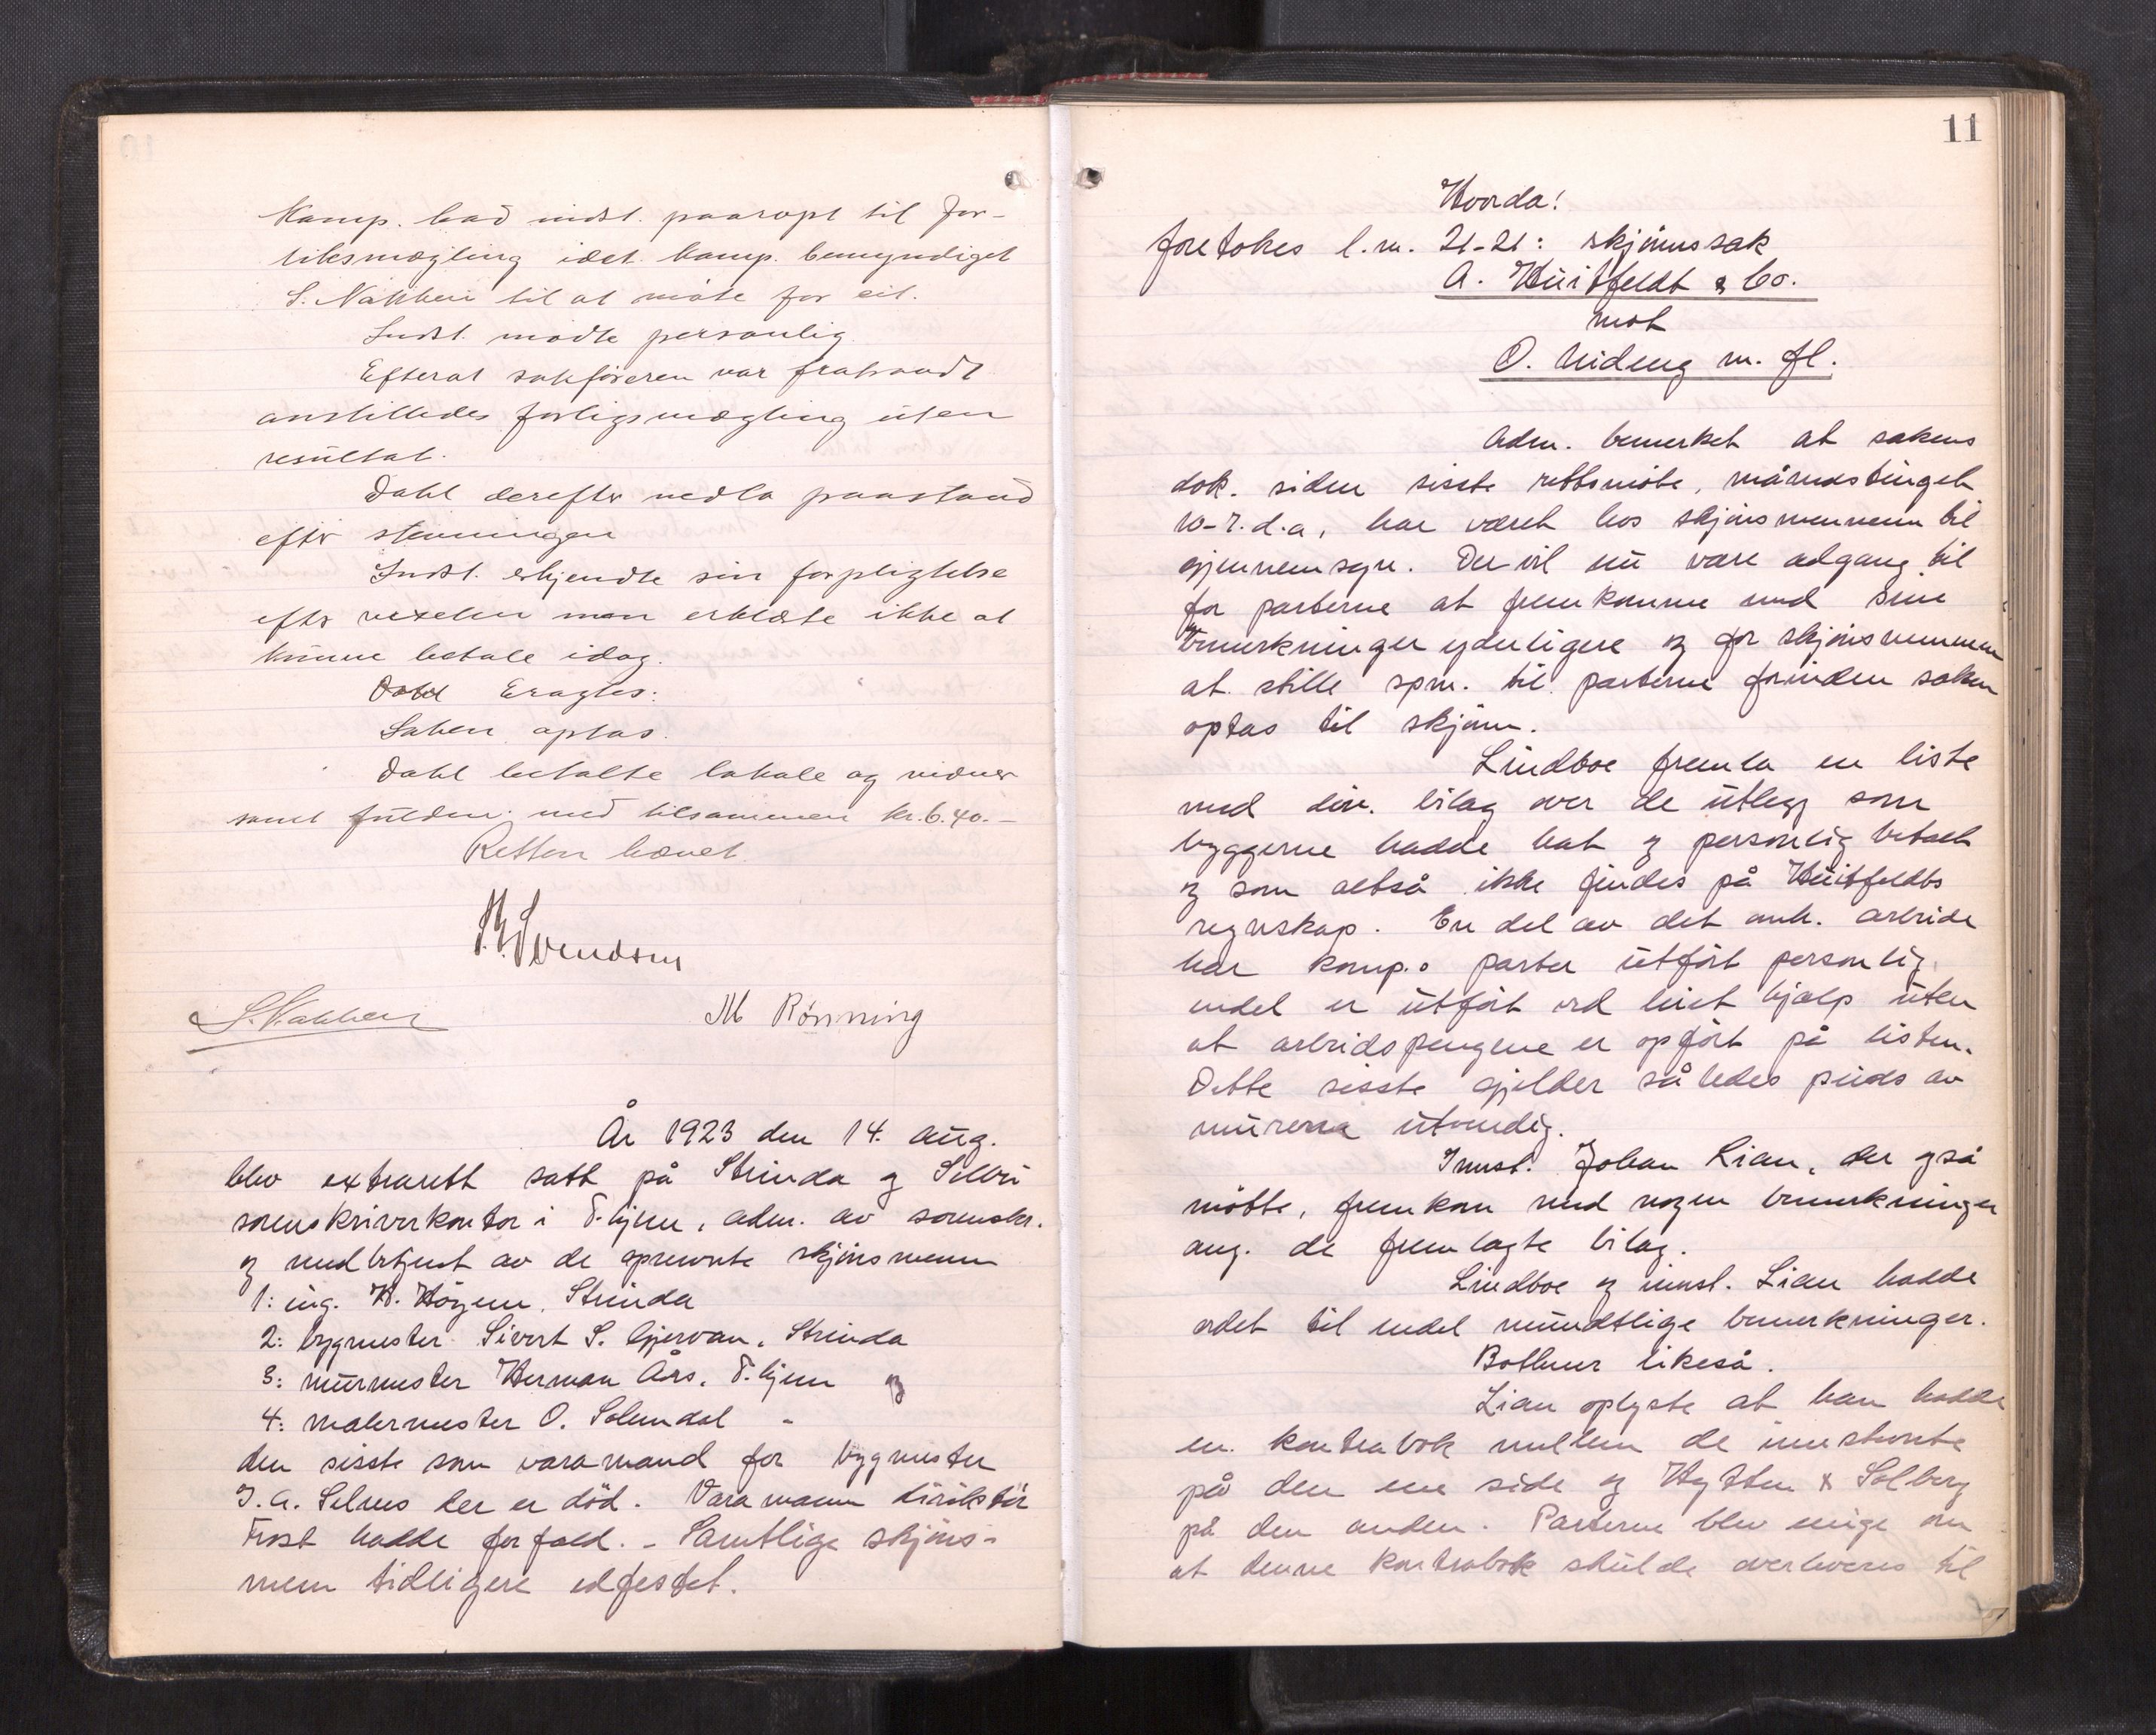 Komp. bad indst. paaropt til for-
liksmægling idet komp. bemyndiget
S. Nakken til at møte for sit.
Indst. mødte personlig.
Efterat sakføreren var fratraadt
anstilledes forligsmægling uten
resultat.
Dahl derefter nedla paastand
efter stevningen
Indst. erkjendte sin forpligtelse
efter vexelen men erklærte ikke at
kunne betale idag.
Eragtes:
Saken optas.
Dahl betalte lokale og vidner
samt fuldm. med tilsammen kr. 6.40.-
Retten hævet.
Svendsen
S. Nakken
M Rønning
År 1923 den 14. aug.
blev extrarett satt på Strinda og Selbu
sorenskriverkontor i T.hjem, adm. av sorenskr.
og medbetjent av de opnevnte skjønsmenn
1: ing. H. Høyem, Strinda
2: bygmester Sivert S. Gjervan, Strinda
3: murmester Herman Års, T.hjem og
4: malermester O. Solemdal -
den sisste som varamand for bygmester
J. A. Selnes der er død. Varamann direktør
Frost hadde forfald. - Samtlige skjøns-
menn tidligere edfestet.
11
Hvorda!
foretokes l.nr. 21-21: skjønnssak
A. Huitfeldt & Co.
mot
O. Nideng m. fl.
Adm. bemerket at sakens
dok. siden sisste rettsmøte, månedstinget
10-7. d.a, har været hos skjønsmennene til
gjennemsyn. Der vil nu være adgang til
for parterne at fremkomme med sine
bemerkninger yderligere og for skjønsmennene
at stille spm. til parterne forinden saken
optas til skjønn.
Lindboe fremla en liste
med div. bilag over de utlegg som
byggerne hadde hat og personlig betalt
og som altså ikke findes på Huitfeldts
regnskap. En del av det anh. arbeide
har komp.s parter utført personlig,
endel er utført ved leiet hjælp uten
at arbeidspengene er opført på listen.
Dette sisste gjelder således puds av
murerne utvendig.
Innst. Johan Lian, der også
møtte, fremkom med nogen bemerkninger
ang. de fremlagte bilag.
Lindboe og innst. Lian hadde
ordet til endel mundtlige bemerkninger.
Bothner likeså.
Lian oplyste at han hadde
en kontrabok mellem de innstevnte
på den ene side og Hytten & Solberg
på den anden. Parterne blev enige om
at denne kontrabok skulde overleveres til